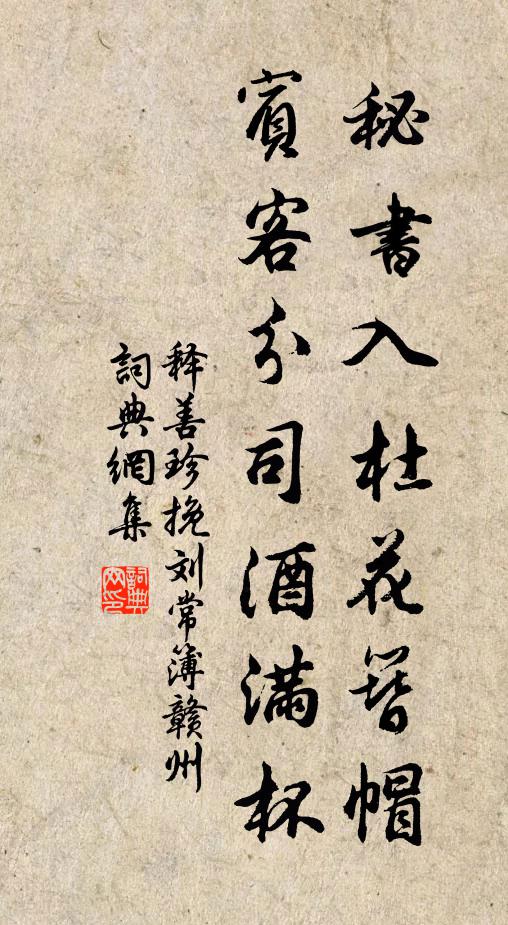 秘書入杜花簪帽
賓客分司酒滿杯
释善珍挽刘常簿赣州
詞典網集
詞典